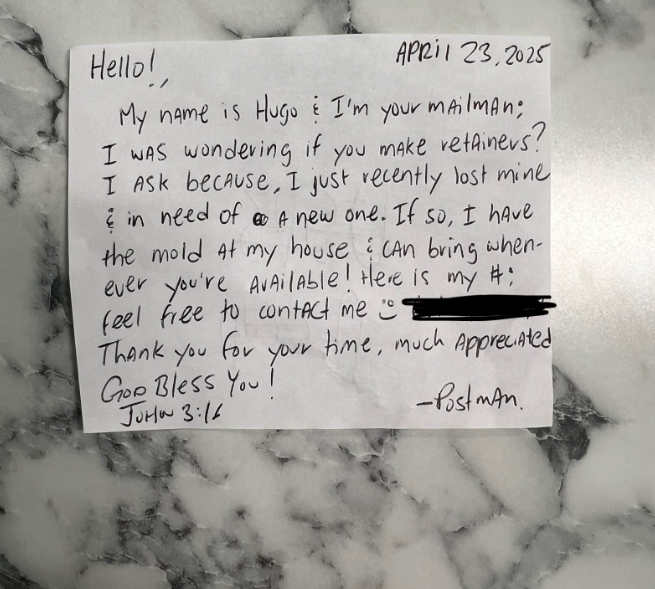 Hello!
APRil 23, 2025
My name is Hugo & I'm your mailman;
I was wondering if you make retainers?
I ask because, I just recently lost mine
& in need of a new one. If so, I have
the mold at my house & can bring when-
ever you're available! Here is my #:
feel free to contact me
Thank you for your time, much appreciated
God Bless You!
John 3:16
-Postman.